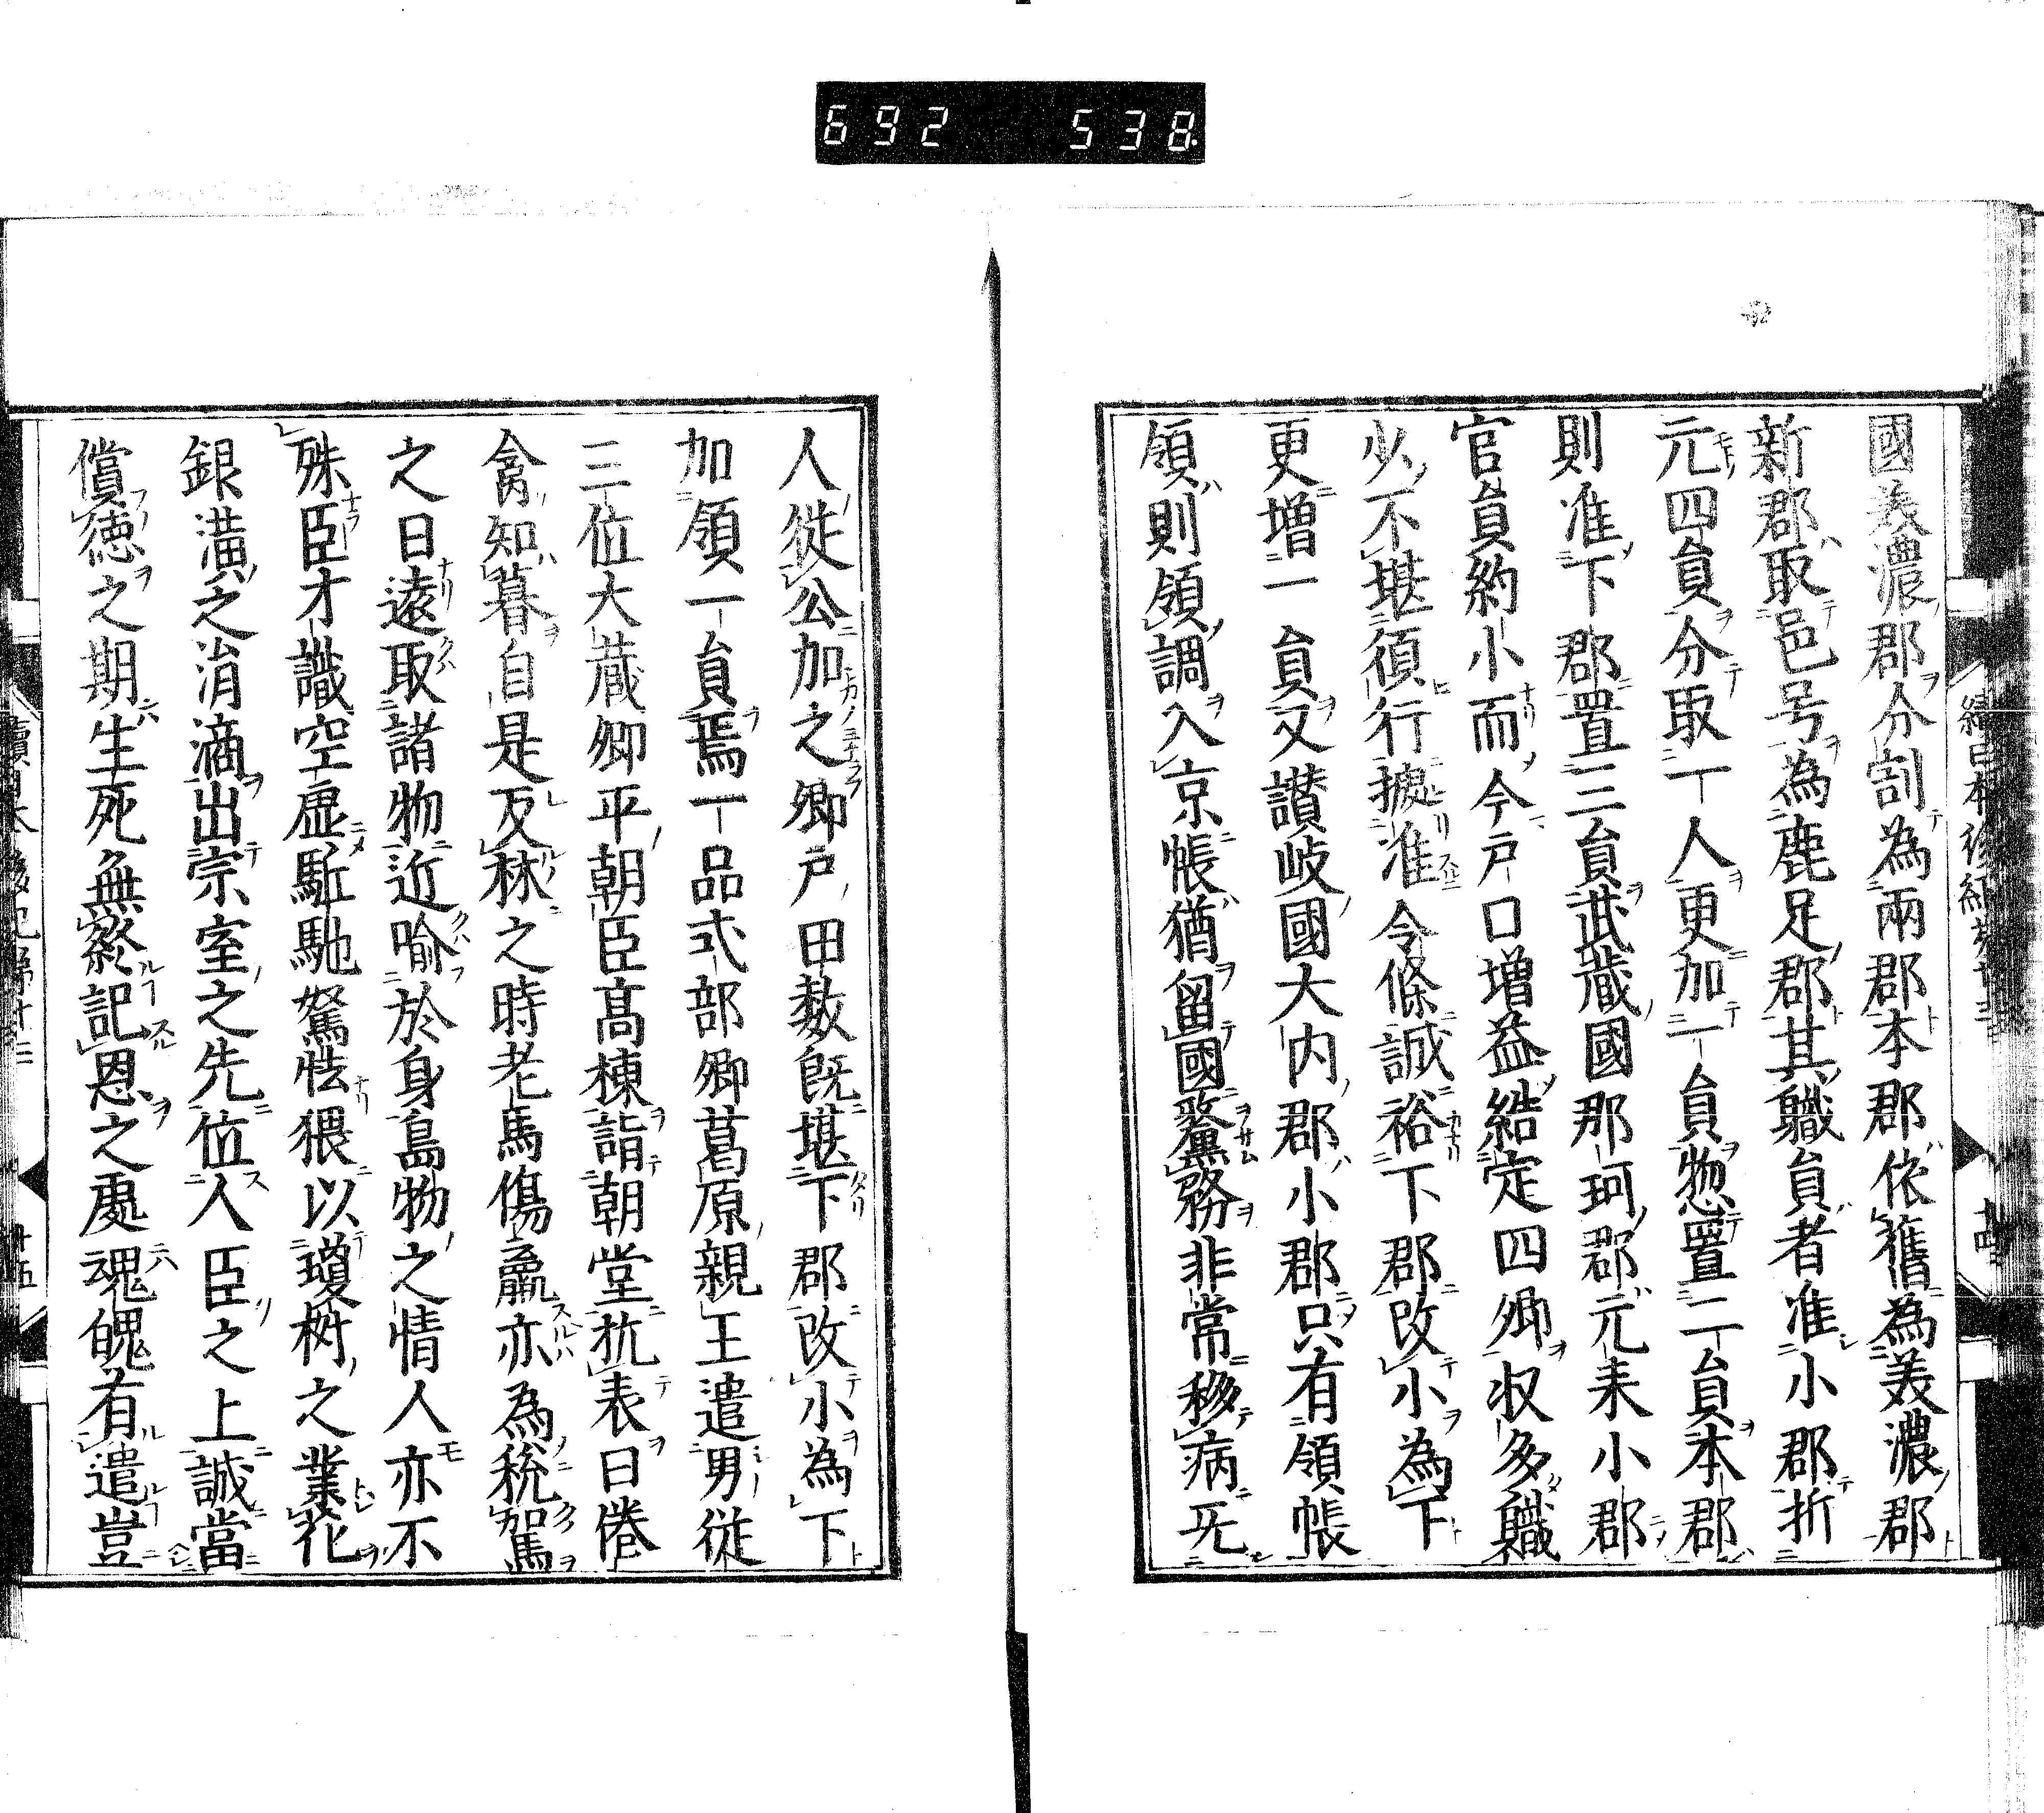 692 538
國美濃郡分割為兩郡本郡依舊為美濃郡
新郡取邑号為鹿足郡其職員者准小郡折
元四員分取一人更加一員惣置二員本郡
則准下郡置三員武蔵國那珂郡元来小郡
官員約小而今戸口増益結定四郷収多職
少不堪須行據准令條誠裕下郡改小為下
更増一員又讃岐國大内郡小郡只有領帳
領則領調入京帳猶留國釐務非常移病无
人従公加之郷戸田数既堪下郡改小為下
加領一員焉一品式部卿葛原親王遣男従
三位大蔵卿平朝臣髙棟詣朝堂抗表曰倦
禽知暮自是反林之時老馬傷羸亦為税駕
之日遠取諸物近喩於身鳥物之情人亦不
殊臣才識空虚駈馳駑怯猥以瓊樹之業花
銀潢之涓滴出宗室之先位人臣之上誠當
償徳之期生死無終記恩之處魂魄有遣豈